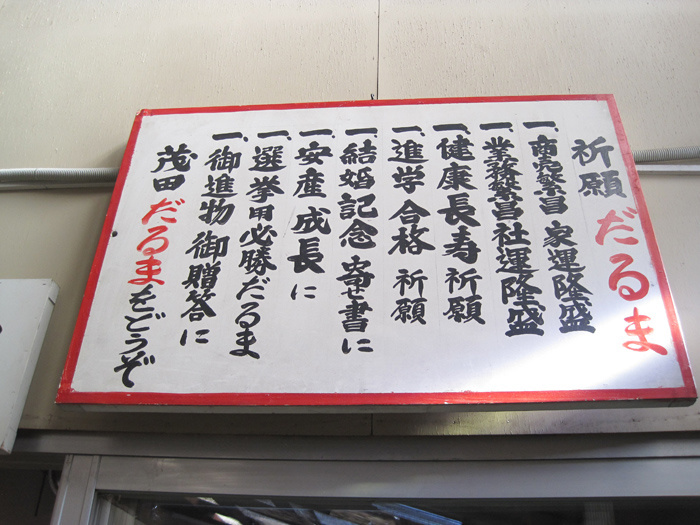 祈願だるま
一、商売繁昌 家運隆盛
一、業務繁昌社運隆盛
一、健康長寿祈願
一、進学合格祈願
一、結婚記念寄せ書に
一、安産成長に
一、選挙用必勝だるま
一、御進物御贈答に
茂田だるまをどうぞ